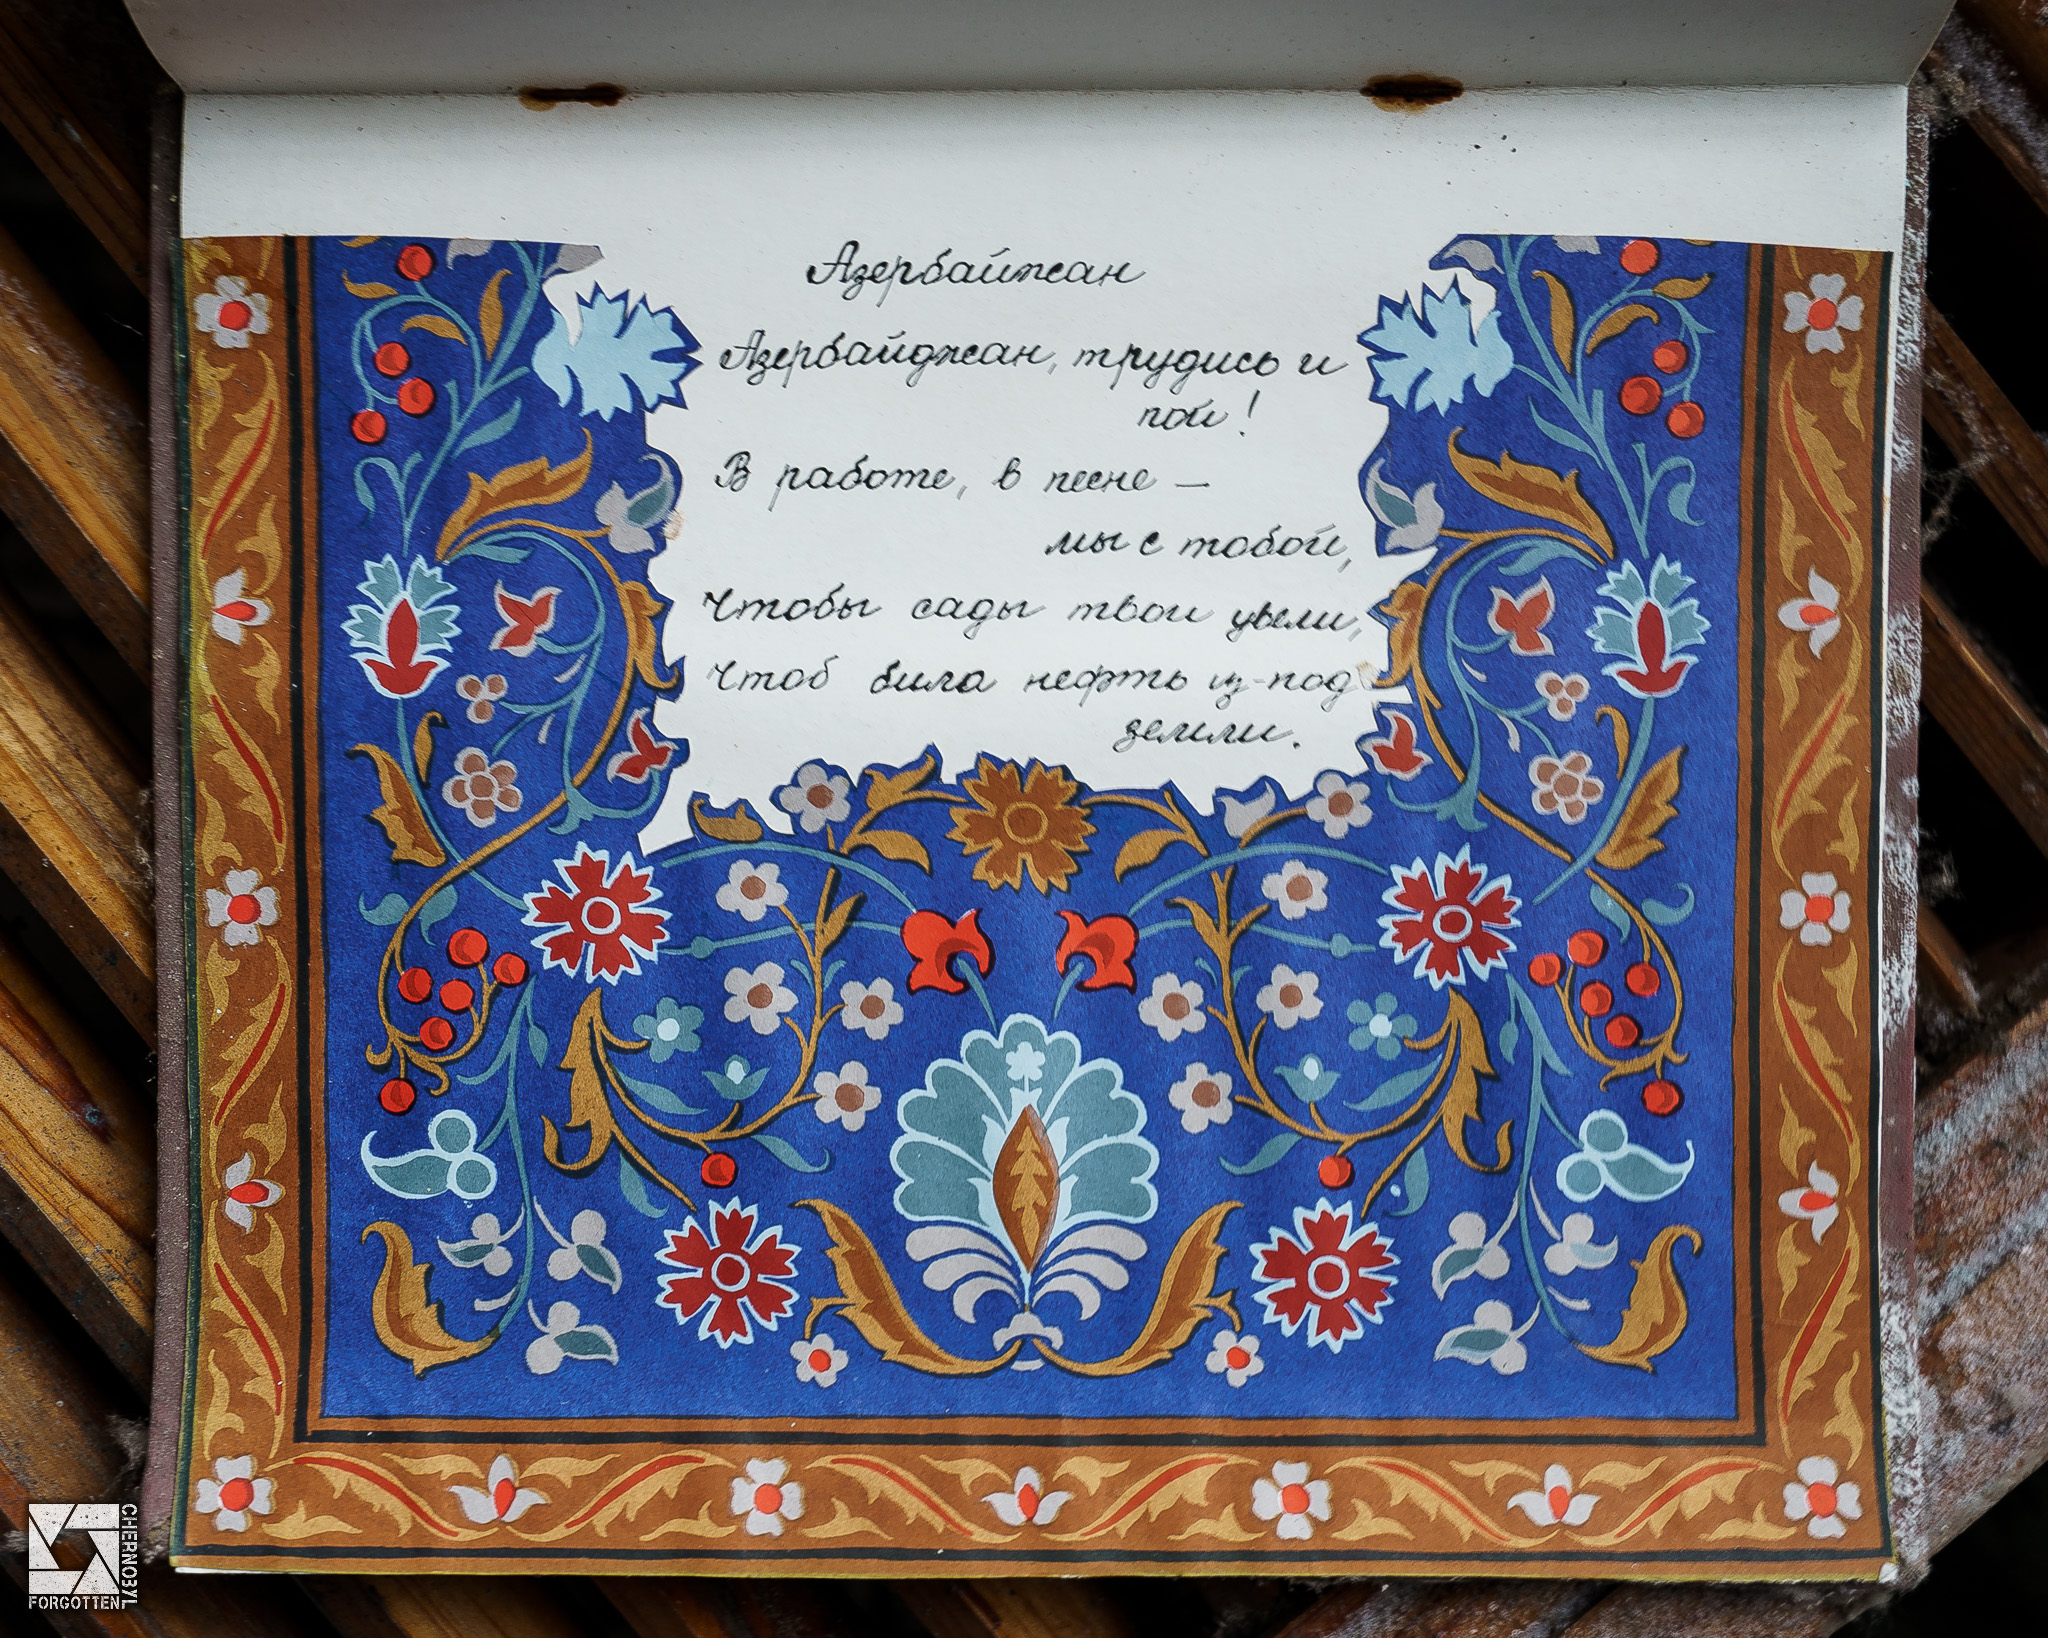 Азербайжан
Азербайджан, трудись и
пой!
В работе, в песне —
мы с тобой,
Чтобы сады твои цвели,
Чтоб била нефть из-под
земли.
CHERNOBYL
FORGOTTEN